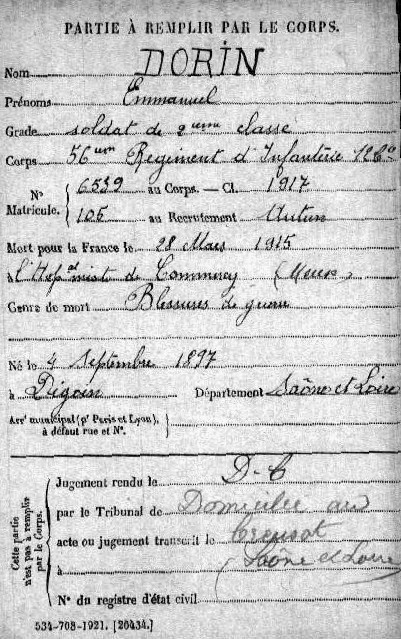 PARTIE À REMPLIR PAR LE CORPS.
Nom DORIN
Prénoms Emmanuel
Grade soldat de 2ème classe
Corps 56ème Régiment d'Infanterie
N° Matricule. 6539 au Corps. — Cl. 1917
105 au Recrutement Autun
Mort pour la France le 28 Mars 1915
à l'Hop mixte de Commercy (Meuse)
Genre de mort Blessures de guerre
Né le 4 septembre 1897
à Digoin Département Saône et Loire
Arrt municipal (pr Paris et Lyon), à défaut rue et N°.
Cette partie n'est pas à remplir par le Corps.
Jugement rendu le D-C
par le Tribunal de Domicilié au
acte ou jugement transcrit le Creusot
à (Saône et Loire)
N° du registre d'état civil
534-708-1921. [26434.]